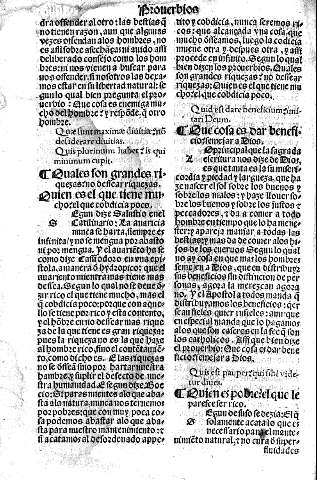 Prouerbios
dra offender al otro: las bestias q̃
no tienen razon, aun que algunas
vezes offendan alos hombres, no
es assi sobre asechãças ni auido assi
deliberado consejo como los hom
bres: ni nos vienen a buscar para
nos offender, si nosotros las dexa
mos estar en su libertad natural: se
gun lo qual bien pregunta el prouerbio
: Que cosa es enemiga mu
cho del hombre: y respõde, q̃ otro
hombre.
Quæ sunt maximæ diuitiæ: nõ
desiderare diuitias.
Quis plurimum habet: is qui
minimum cupit.
¶ Quales son grandes ri
quezas: no dessear riquezas.
Quien es el que tiene mu
cho: el que cobdicia poco.
Segun dize Salustio en el
Catilinario: La auaricia
nunca se harta, siempre es
infinita: y no se mengua por abasto
ni por mengua. Y el auariẽto es
como dize Cassiodoro en vna epistola,
a manera d̃ hydropico: que el
auariento mientra mas tiene mas
dessea. Segun lo qual no se deue dezir
rico el que tiene mucho, mas el
q̃ cobdicia poco: porque con aquello
se tiene por rico y esta contento,
y el hõbre en no dessear mas riqueza
de la que tiene es gran riqueza:
pues la riqueza no es la que haze
al hombre rico, sino el contẽtamiẽto,
como dicho es. E las riquezas
no se dessea sino por hartar nuestra
hambre, y suplir el defecto de nuestra
humanidad. E segun dize Boecio:
Si para mientes alo que abasta
ala natura, nunca nos ternemos
por pobres: que con muy poca cosa
podemos abastar alo que abasta
para nuestro mantenimiento: si
acatamos al desordenado appe-
tito y cobdicia, nunca seremos ricos:
que alcançada vna cosa que
mucho desseamos, luego la codicia
mueue otra y despues otra, y assi
procede en infinito. Segun lo qual
bien dizen los prouerbios. Quales
son grandes riquezas: no dessear
riquezas: Quien es el que tiene mucho:
el que cobdicia poco.
Quid est dare beneficium: imitari
Deum.
¶ Que cosa es dar beneficio:
semejar a Dios.
Principal que la sagrada
escritura nos dize de Dios,
es que tanta es la su misericordia
y piedad y largueza, que haze
nascer el sol sobre los buenos y
sobre los malos: y haze llouer sobre
los buenos y sobre los justos y
peccadores, y da a comer a todo
hombre en tiempo que lo ha menester:
y apareja manjar a todas las
bestias: y manda de comer alos hijos
de los cueruos. Segun lo qual
no ay cosa en que mas los hombres
semejen a Dios, que en distribuyr
sus beneficios sin distincion de personas,
agora la merezcan agora
no. Y el apostol a todos manda q̃
distribuyamos los beneficios: q̃ cerce
as fieles quier ricales: aun que
en especial manda que lo hagamos
alos que son caseros en la feeq̃ son
los catholicos. Assi que bien dize
el prouerbio: Que cosa es dar beneficio:
semejar a Dios.
Quis est pauper: qui sibi videtur
diues.
¶ Quien es pobre: el que le
paresce ser rico.
Segun de suso se dezia: El q̃
solamente acata lo que es
necessario para el mantenimiẽto
natural, no cura d̃ superfluidades